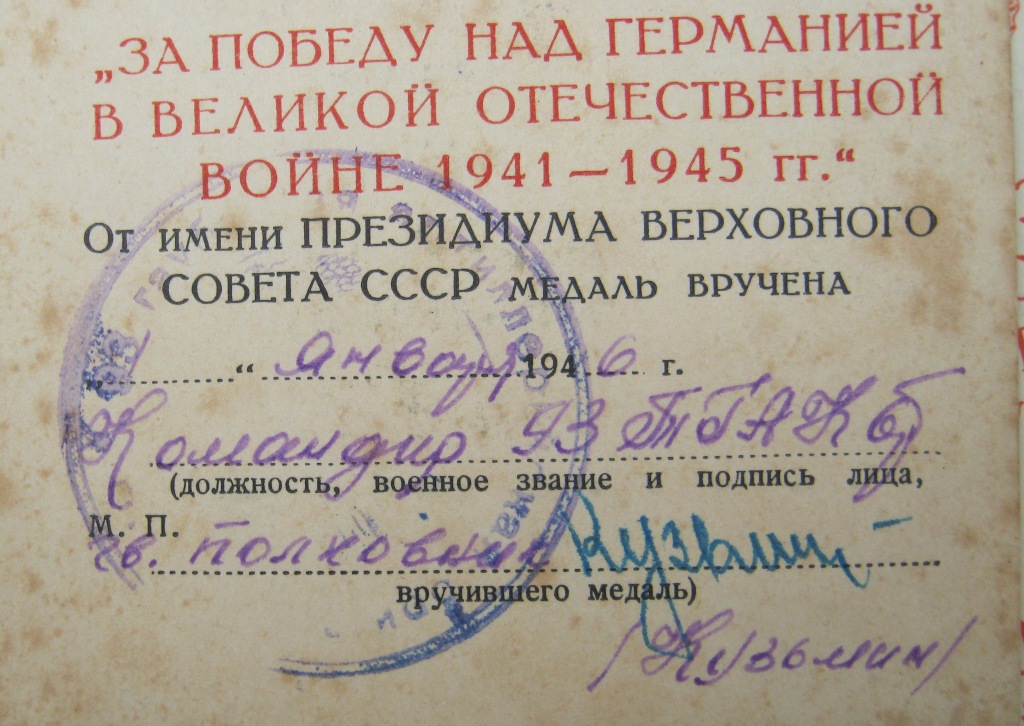 „ЗА ПОБЕДУ НАД ГЕРМАНИЕЙ
В ВЕЛИКОЙ ОТЕЧЕСТВЕННОЙ
ВОЙНЕ 1941—1945 гг.“
От имени ПРЕЗИДИУМА ВЕРХОВНОГО
СОВЕТА СССР медаль вручена
„ “ января 1946 г.
Командир 93 ТГАКбр
(должность, военное звание и подпись лица,
М. П.
гв. полковник Кузьмин
вручившего медаль)
/Кузьмин/